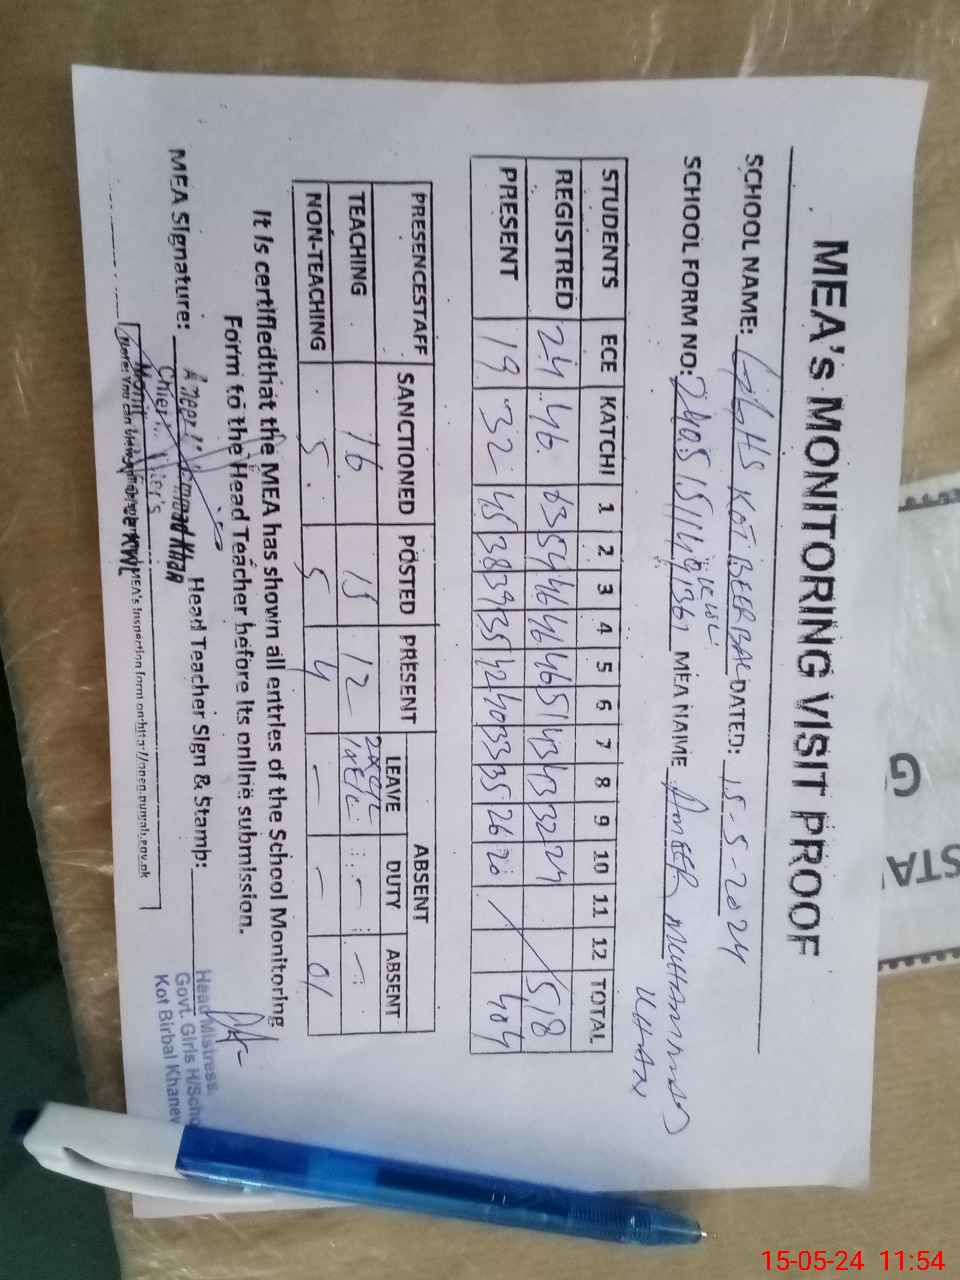 MEA's MONITORING VISIT PROOF
SCHOOL NAME: GGHS KOT BEERBAL DATED: 15-5-2024
KWL
SCHOOL FORM NO: MEA NAME AMEER MUHAMMAD
KHAN
STUDENTS ECE KATCHI 1 2 3 4 5 6 7 8 9 10 11 12 TOTAL
REGISTRED 24 46 63 54 46 46 46 51 43 43 32 24 518
PRESENT 19 32 45 38 39 35 42 40 33 35 26 20 404
PRESENCESTAFF SANCTIONED POSTED PRESENT ABSENT
LEAVE DUTY ABSENT
TEACHING 16 15 12 - -
NON-TEACHING 5 5 4 - - 01
It is certifiedthat the MEA has shown all entries of the School Monitoring
Form to the Head Teacher before its online submission.
MEA Signature: Head Teacher Sign & Stamp:
Head Mistress.
Govt. Girls H/Scho
Kot Birbal Khanew
MEA's Inspection form on http://open.punjab.gov.pk
G
STA
15-05-24 11:54